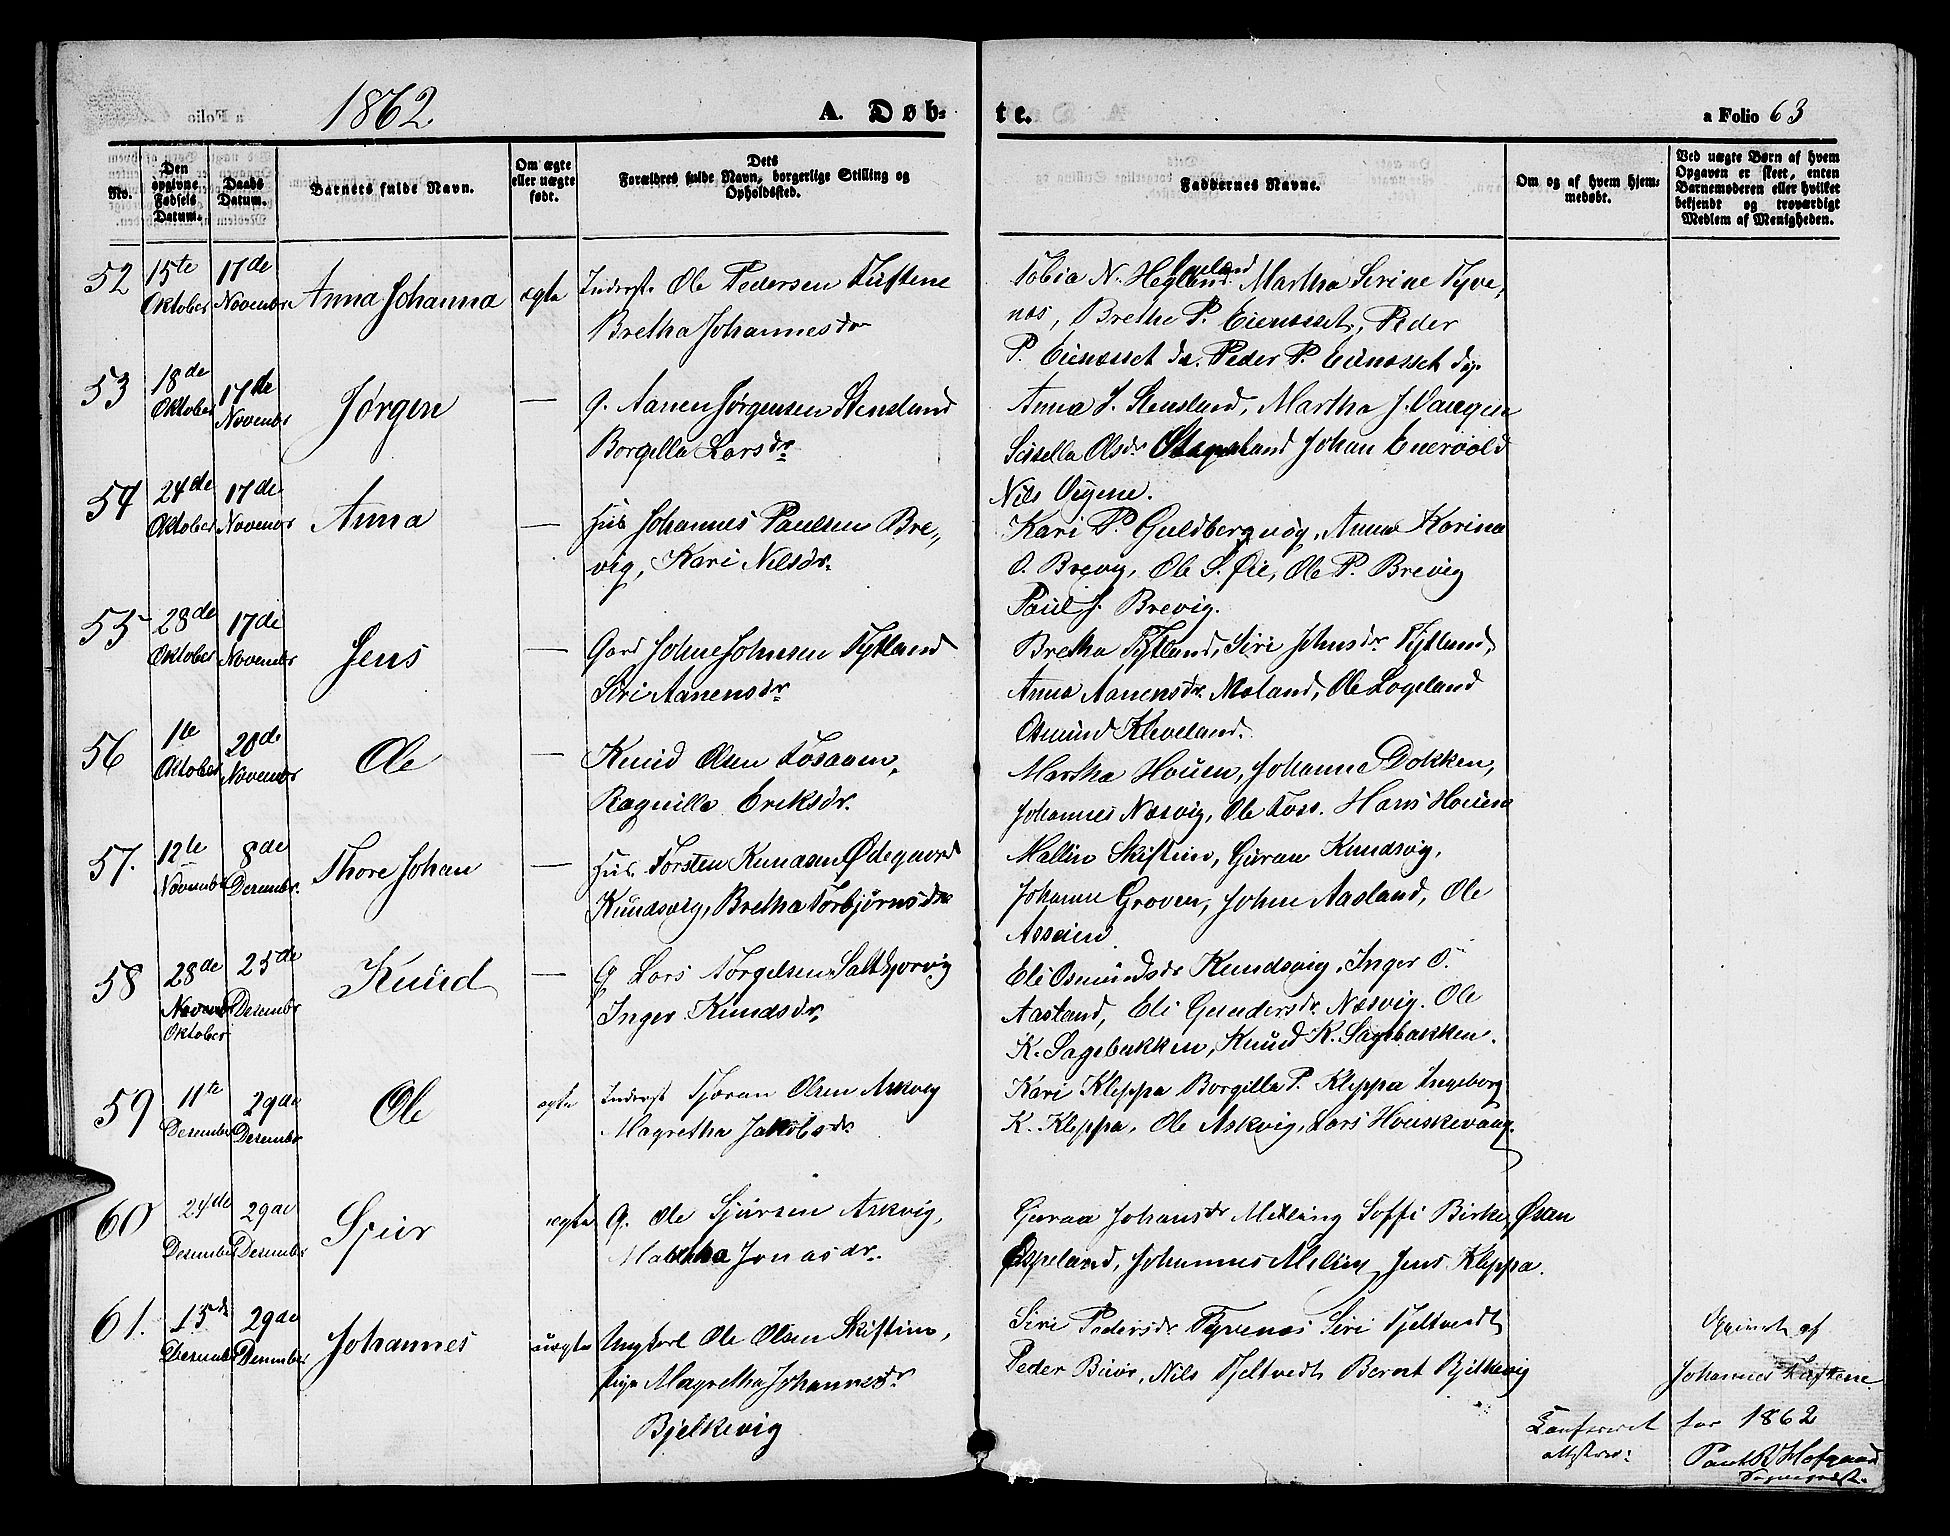 1862.
A. Døb-
te.
a Folio 63
No.
Den opgivne Fødsels Datum.
Daabs Datum.
Barnets fulde Navn.
Om ægte eller uægte født.
Dets Forældres fulde Navn, borgerlige Stilling og Opholdssted.
Faddernes Navne.
Om og af hvem hjemmedøbt.
Ved uægte Børn af hvem Opgaven er skeet, enten Barnemoderen eller hvilket bekjendt og troværdigt Medlem af Menigheden.
52 15te Oktober 17de Novembr Anna Johanna ægte Inderst. Ole Pedersen Tuftene
Bretha Johannesdr
Tobia N. Hegland Martha Serine Tyve,
nes, Brethe P. Eienesset, Peder
P. Eienesset da. Peder P. Eienesset dy.
53 18de Oktober 17de Novembr Jørgen — G. Aanen Jørgensen Stensland
Borgilla Larsdr.
Anna J. Stensland, Martha J.
Sissella Olsdr Stensland Johan Enervold
Nils Vigene.
54 24de Oktober 17de Novembr Anna — Hus Johannes Paulsen Bre„
vig, Kari Nilsdr.
Kari P. Guldberg, Anna Karina
O. Brevig, Ole S. Øie, Ole P. Brevig
Paul J. Brevig.
55 28de Oktober 17de Novembr Jens — Gard John Johnsen Tytland
Siri Aanensdr.
Bretha Tytland, Siri Johnsdr Tytland,
Anna Aanensdr. Moland, Ole Logeland
Osmund Kleveland.
56 1te Oktober 20de Novembr Ole — Knud Olsen Fosaaen,
Ragnille Eriksdr.
Martha Houen, Johanne Dokken,
Johannes Næsvig, Ole Foss. Hans Houen
57. 12te Novembr 8de Desembr. Thore Johan — Hus. Torsten Knudsen Ødegaard
Knudsvig, Bretha Torbjørnsdr
Mallin Skiftun, Guran Knudsvig,
Johanne Groven, John Aasland, Ole
58 28de Novembr Oktober 25de Desembr Knud — G Lars Torgelsen Saltkjorvig
Inger Knudsdr,
Eli Osmundsdr Knudsvig, Inger O.
Aasland, Eli Gundersdr Næsvig. Ole
K. Sagebakken, Knud K. Sagebakken.
59 11te Desember 29de Desembr Ole ægte Inderst Tjøran Olsen Askvig
Magretha Jakobsdr
Kari Kleppa Borgilla P. Kleppa Ingeborg
K. Kleppa, Ole Askvig, Lars Houskevaag.
60 24de Desember 29de Desember Sjur ægte G. Ole Sjursen Askvig,
Martha Jonasdr.
Guraa Johansdr Melling Soffi Birke, Øian
Espeland, Johannes Meling Jens Kleppa.
61. 15de Desember 29de Desember Johannes uægte Ungkarl Ole Olsen Skiftun,
pige Magretha Johannesdr
Bjelkevig
Siri Pedersdr Tyvenes Siri Tjeltvedt
Peder Buør, Nils Tjeltvedt Berent Bjelkevig
Opgivet af
Johannes Tuftene
Konfereret for 1862
attesteres:
Paul B Hofgaard
Sogneprest.